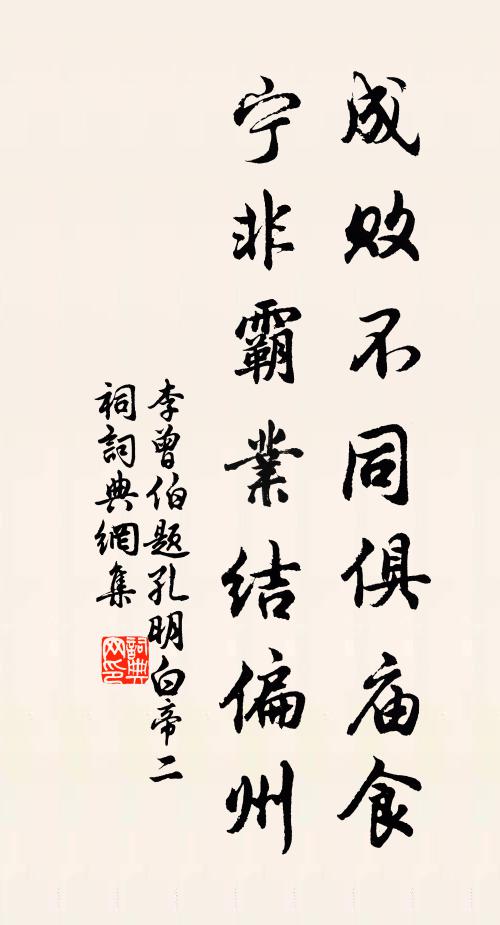 成败不同俱庙食
宁非霸業结偏州
李曾伯题孔明白帝二
祠詞典網集
詞典网印